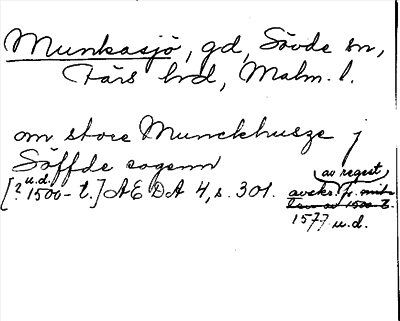 Munkasjö, gd, Sövde sn,
Färs hd, Malm. l.
om store Munckhusze j
Söffde sogenn
[? u.d. 1500-t.] AEDA 4, s. 301. avskr. fr. mitten av 1500-t.
av regest
1577 u.d.